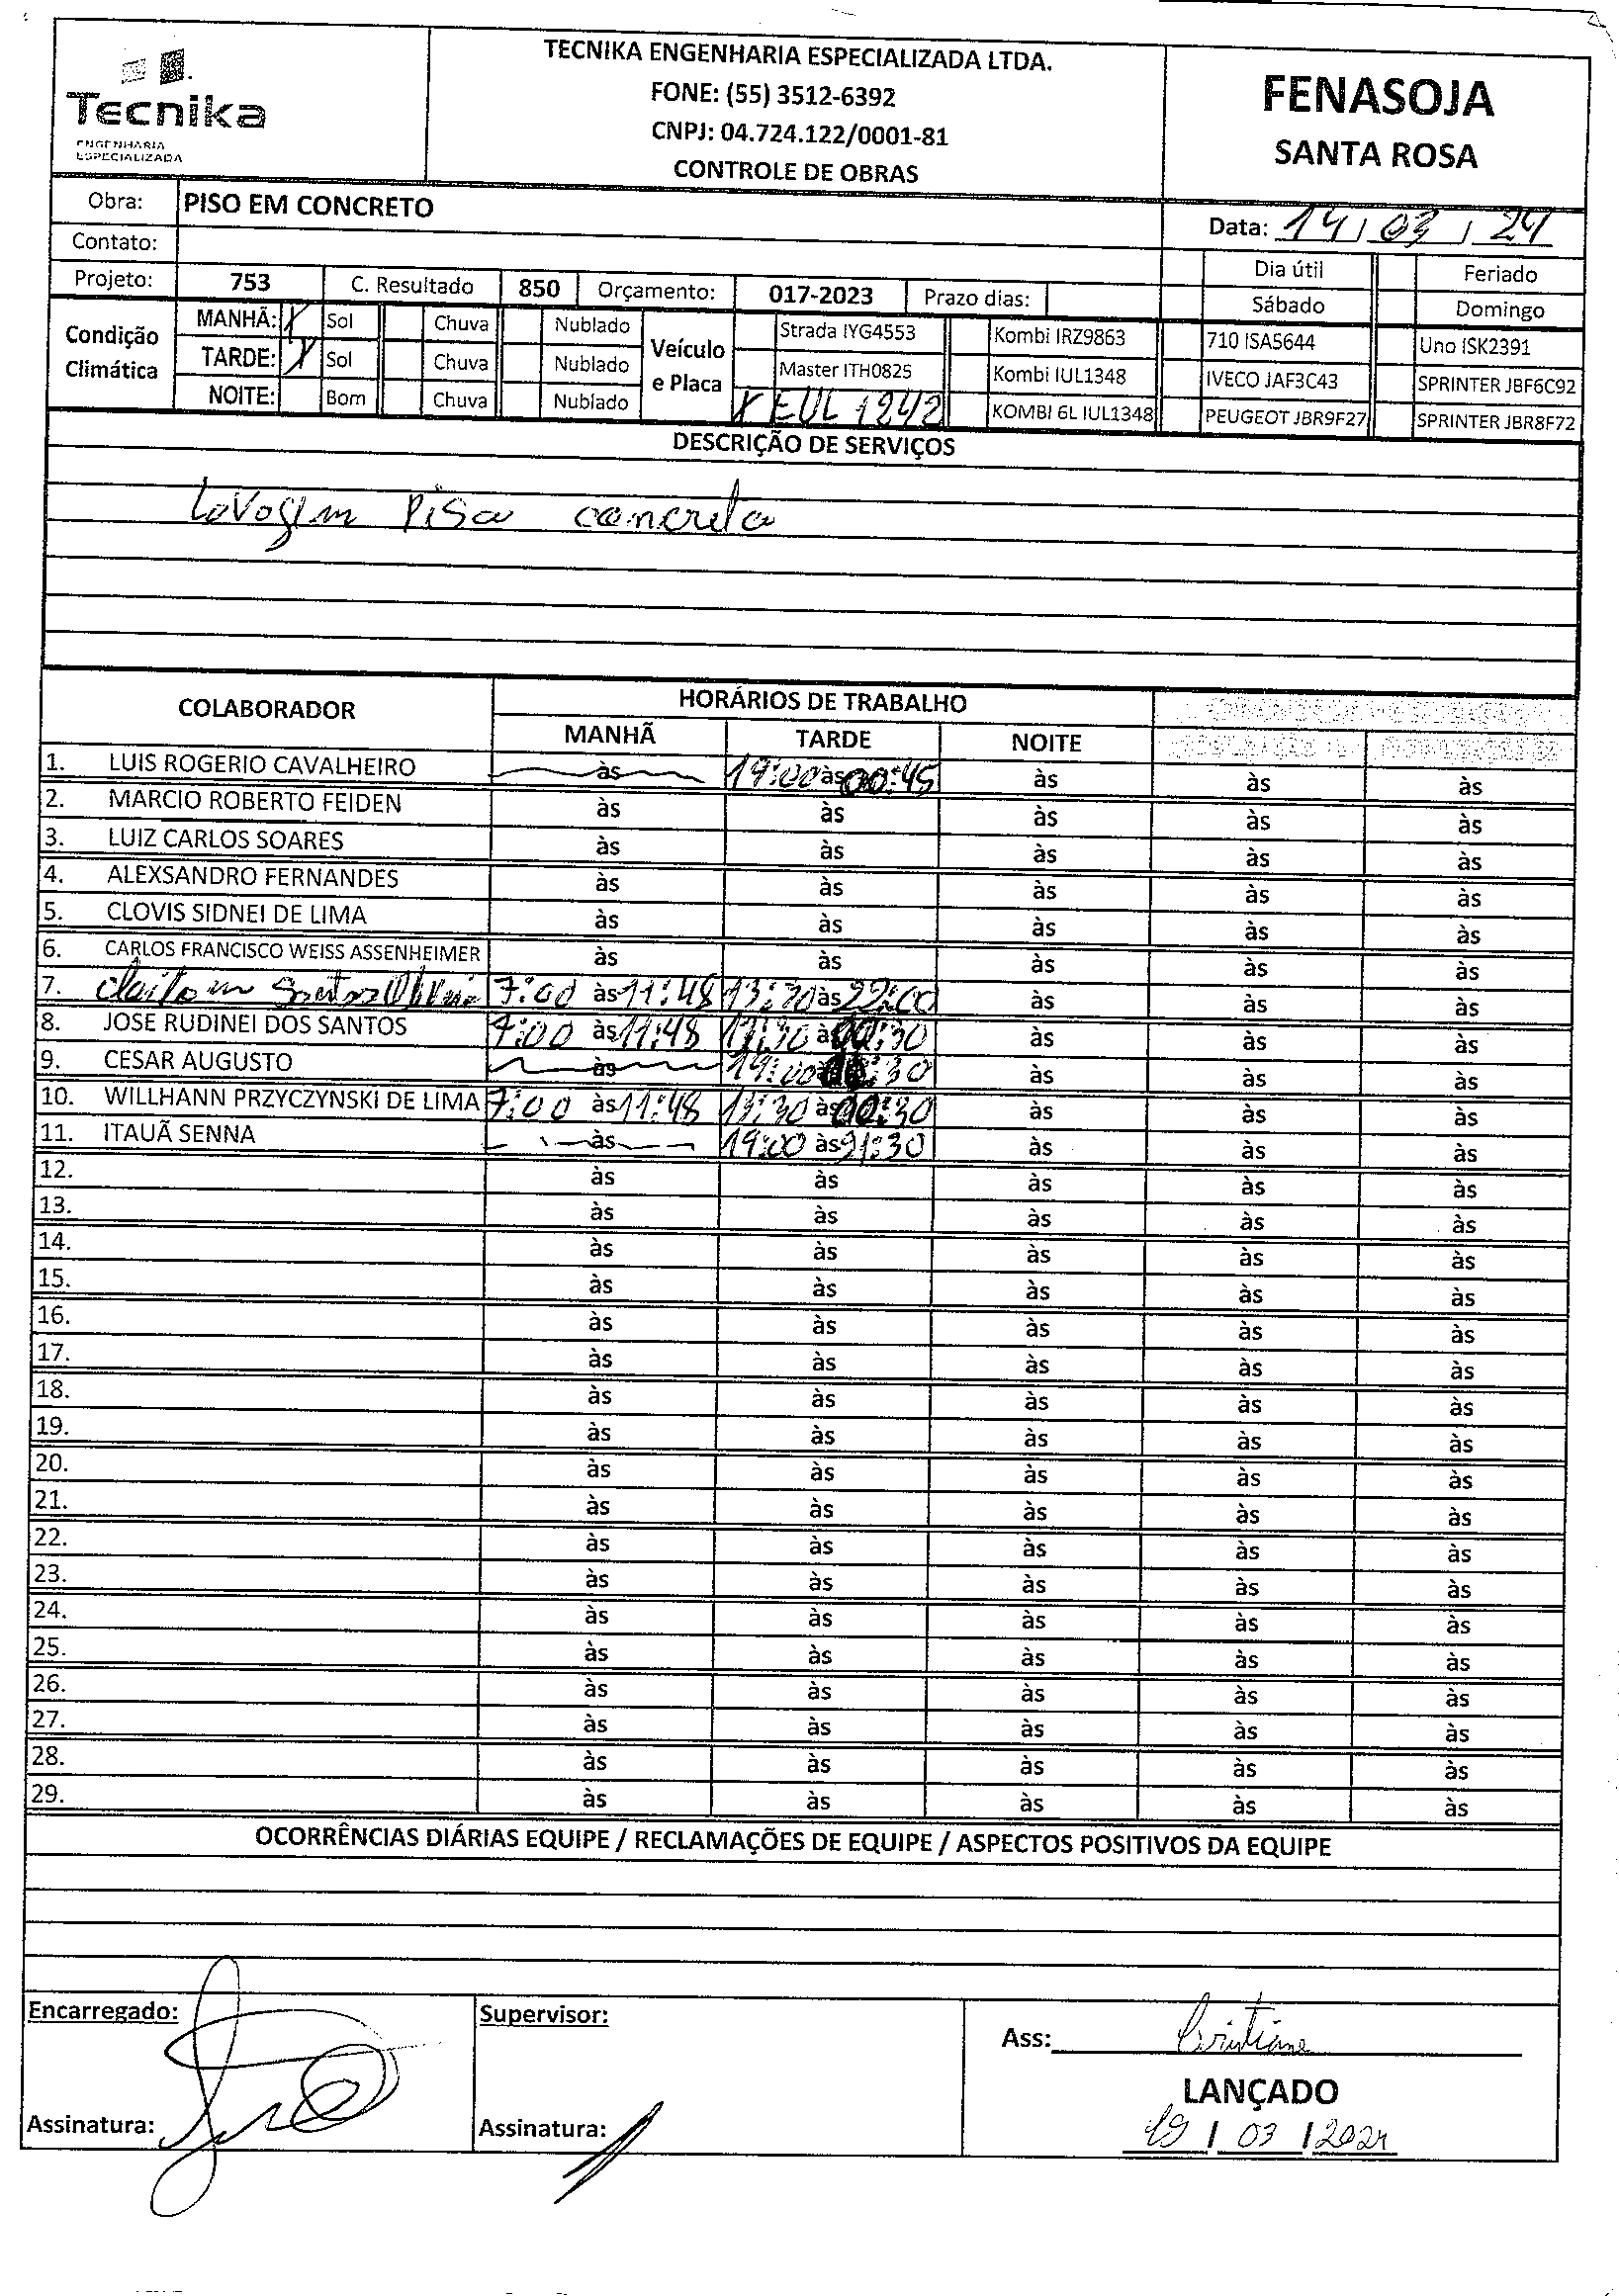 Tecnika
ENGENHARIA
ESPECIALIZADA
TECNIKA ENGENHARIA ESPECIALIZADA LTDA.
FONE: (55) 3512-6392
CNPJ: 04.724.122/0001-81
CONTROLE DE OBRAS
FENASOJA
SANTA ROSA
Obra: PISO EM CONCRETO
Data: 14 / 03 / 24
Contato:
Dia útil Feriado
Projeto: 753 C. Resultado 850 Orçamento: 017-2023 Prazo dias:
Sábado Domingo
Condição Climática
MANHÃ: X Sol Chuva Nublado
TARDE: X Sol Chuva Nublado
NOITE: Bom Chuva Nublado
Veículo e Placa
Strada IYG4553 Kombi IRZ9863 710 ISA5644 Uno ISK2391
Master ITH0825 Kombi IUL1348 IVECO JAF3C43 SPRINTER JBF6C92
X EUL 1242 KOMBI 6L IUL1348 PEUGEOT JBR9F27 SPRINTER JBR8F72
DESCRIÇÃO DE SERVIÇOS
Lavogem Piso concreto
COLABORADOR HORÁRIOS DE TRABALHO
MANHÃ TARDE NOITE
1. LUIS ROGERIO CAVALHEIRO às 19:00 às 00:45 às às às
2. MARCIO ROBERTO FEIDEN às às às às às
3. LUIZ CARLOS SOARES às às às às às
4. ALEXSANDRO FERNANDES às às às às às
5. CLOVIS SIDNEI DE LIMA às às às às às
6. CARLOS FRANCISCO WEISS ASSENHEIMER às às às às às
7. Santos 7:00 às 11:48 13:30 às 22:00 às às às
8. JOSE RUDINEI DOS SANTOS 7:00 às 11:48 13:30 às 00:30 às às às
9. CESAR AUGUSTO às 19:00 :30 às às às
10. WILLHANN PRZYCZYNSKI DE LIMA 7:00 às 11:48 13:30 às 00:30 às às às
11. ITAUÃ SENNA às 19:00 às 21:30 às às às
12. às às às às às
13. às às às às às
14. às às às às às
15. às às às às às
16. às às às às às
17. às às às às às
18. às às às às às
19. às às às às às
20. às às às às às
21. às às às às às
22. às às às às às
23. às às às às às
24. às às às às às
25. às às às às às
26. às às às às às
27. às às às às às
28. às às às às às
29. às às às às às
OCORRÊNCIAS DIÁRIAS EQUIPE / RECLAMAÇÕES DE EQUIPE / ASPECTOS POSITIVOS DA EQUIPE
Encarregado: Supervisor:
Ass: Cristiane
LANÇADO
Assinatura: Assinatura:
19 / 03 / 2024